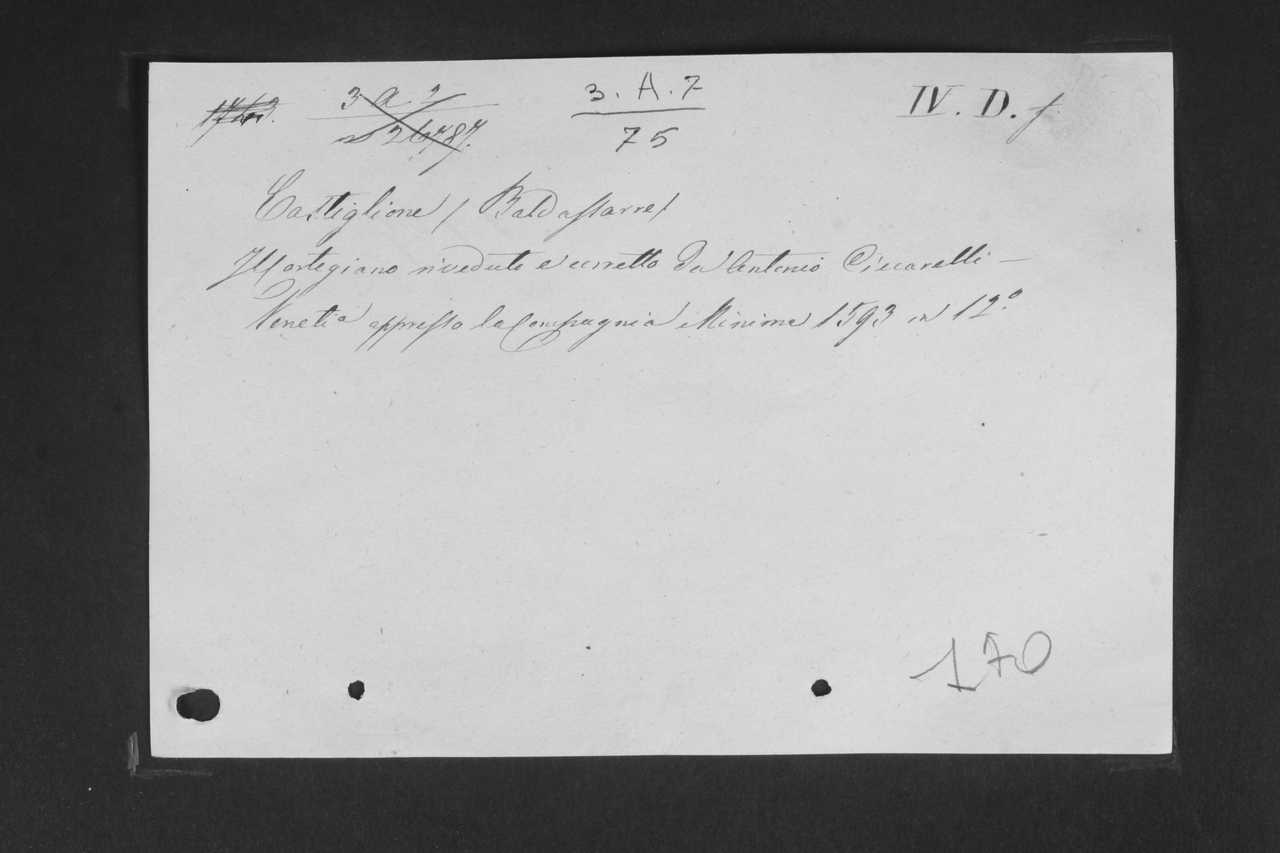 3 a 2 3. A. 7 IV. D. f
75
Castiglione / Baldassarre /
Il Cortegiano riveduto e corretto da Antonio Ciccarelli —
Venetia appresso la Compagnia Minima 1593 in 12.º
170